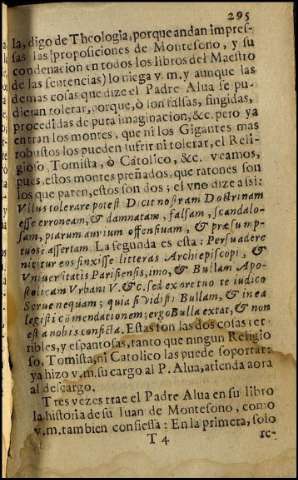 295
la, digo de Theologia, porque andan impres-
sas las proposiciones de Montesono, y su
condenacion en todos los libros del Maestro
de las sentencias) lo niega v. m. y aunque las
demas cosas que dize el Padre Alua se pu-
dieran tolerar, porque, ò son falsas, fingidas,
procedidas de pura imaginacion, &c. pero ya
entran los montes, que ni los Gigantes mas
robustos los pueden sufrir ni tolerar, el Reli-
gioso, Tomista, ò Catolico, &c. veamos,
pues, estos montes preñados, que ratones son
los que paren, estos son dos; el vno dize assi:
Vllus tolerare potest Dicit nostram Doctrinam
esse erroneam, & damnatam, falsam, scandalo-
sam, piarum aurium offensiuam, & præsump-
tuose assertam. La segunda es esta: Persuadere
nititur eos finxisse litteras Archiepiscopi, &
Vniuersitatis Parisiensis, imo, & Bullam Apo-
stolicam Vrbani V. & c. sed ex ore tuo te iudico
Serue nequam; quia si Vidisti Bullam, & in ea
legisti commendationem; ergo Bulla extat, & non
est a nobis conficta. Estas son las dos cosas ter-
ribles, y espantosas, tanto que ningun Religio
so, Tomista, ni Catolico las puede soportar:
ya hizo v. m. su cargo al P. Alua, atienda aora
al descargo.
Tres vezes trae el Padre Alua en su libro
la historia de su Iuan de Montesono, como
v. m. tambien confiessa: En la primera, solo
T 4
re-